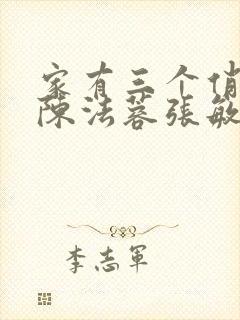 家有三个俏
陈法蓉张敏
李志军